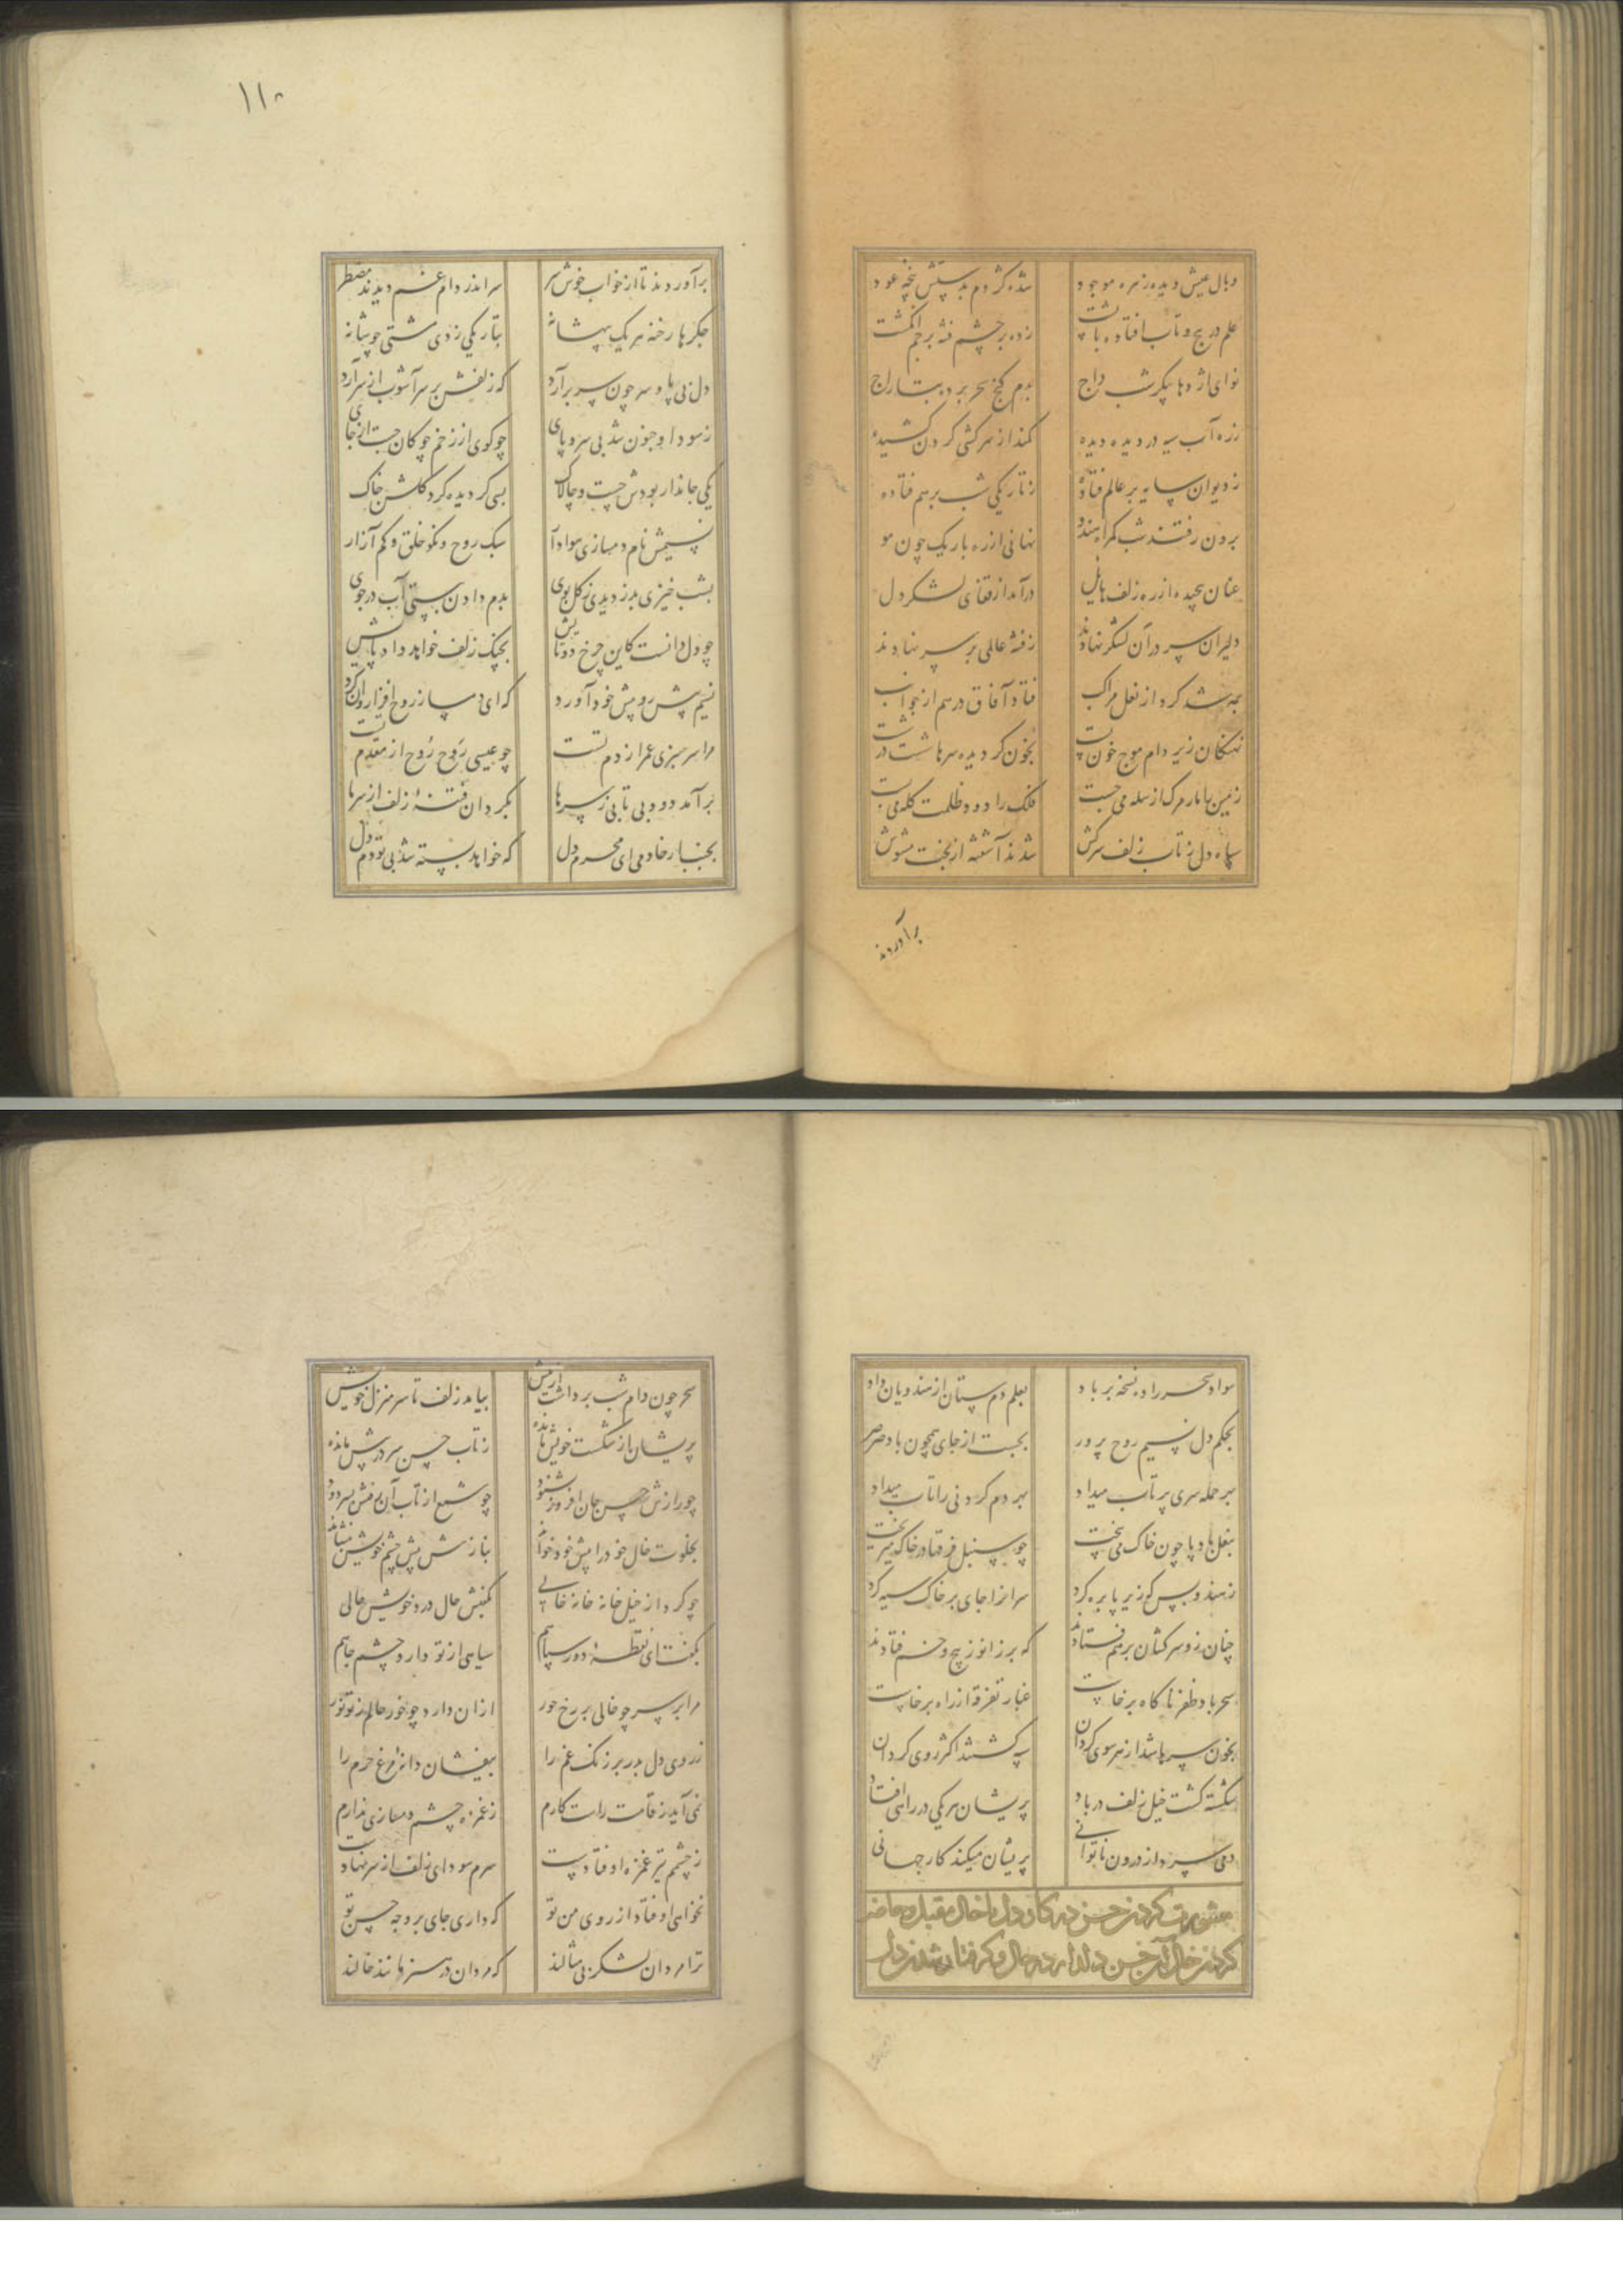 وبال عیش دیده زهره موجود
شده کژدم بدستش پنجه عود
علم در پیچ و تاب افتاده با پشت
زده بر چشم فتنه پرچم انگشت
نوای اژدها پیکر شب داج
بدم گنج سحر برده بتاراج
زره آب سیه در دیده دیده
کمند از سرکشی گردن کشیده
ز دیوان سایه بر عالم فتاده
ز تاریکی شب برهم فتاده
برون رفتند شب گمراه هندو
نهانی از ره باریک چون مو
عنان پیچیده از ره زلف هایل
درآمد از قفای لشکر دل
دلیران سر در آن لشکر نهادند
ز فتنه عالمی بر سر نهادند
سیه شد گرد از نعل مراکب
فتاد آفاق درهم از جوانب
نهنگان زیر دام موج خون پست
بخون گردیده سرها شست در
زمین با مار مرگ از سله می جست
فلک را دود ظلمت کله می بست
سپاه دل ز تاب زلف سرکش
شدند آشفته از بخت مشوش
برآوردند
۱۱۰
برآوردند تا از خواب خوش سر
سر اندر دام غم دیدند مضطر
جگرها رخنه هر یک بهر شانه
بتاریکی زدی مشتی چو شانه
دل بی پا و سر چون سر برآرد
که زلفش بر سر آشوب از سر آرد
ز سودا و جنون شد بی سر و پای
چو گوی از زخم چوگان جست از جای
یکی جاندار بودش چست و چالاک
بسی گردیده گرد گلشن خاک
نسیمش نام و دمسازی هوادار
سبک روح و نکو خلق و کم آزار
بشب خیزی بدزدیدی ز گل بوی
بدم دادن ببستی آب در جوی
چو دل دانست کاین چرخ دوتایش
بچنگ زلف خواهد داد پایش
نسیمش رو پیش خود آورد
که ای دمساز روح افزا روان گرد
مرا سرسبزی عمر از دم تست
چو عیسی روح روح از مقدم تست
برآمد دود بی تابی ز سرها
بگردان فتنهٔ زلف از سر ما
بجنبان خادمی ای محرم دل
که خواهد بسته شد بی تو دم دل
سواد سحر را ده نسخه بر باد
بعلم دم ستان از هندویان داد
بحکم دل نسیم روح پرور
بجست از جای همچون باد صرصر
بهر حمله سری پرتاب میداد
بهر دم گردنی را تاب میداد
بنعل بادپا چون خاک می بیخت
چو سنبل فرقها در خاک میریخت
ز هندو بس که زیر پا بره کرد
سرانرا جای بر خاک سیه کرد
چنان زو سرکشان برهم فتادند
که بر زانو ز پیچ و خم فتادند
سحر باد ظفر ناگاه برخاست
غبار تفرقه از راه برخاست
بخون سرها شد از هر سوی گردان
سیه گشتند اکثر روی گردان
شکسته گشت خیل زلف در باد
پریشان هر یکی در راهی افتاد
دمی سرد از درون ناتوانی
پریشان میکند کار جهانی
مشورت کردن حسن در کار دل با خال مقبل و حاضر
کردن خال آن حسن دلدار در حال و گرفتار شدن دل
سحر چون دام شب برداشت از پیش
بیامد زلف تا سر منزل خویش
پریشان از شکست خویش مانده
ز تاب حسن سر در پیش مانده
چو رازش حسن جان افروز بشنود
چو شمع از تاب آن رفتش بسر دود
بخلوت خال خود را پیش خود خواند
بنازش پیش چشم خویش بنشاند
چو کرد از خیل خانه خانه خالی
بگفتش حال درد خویش حالی
بگفت ای نقطهٔ دور سپاهم
سیاهی از تو دارد چشم جاهم
مرا بر سر چو خالی بر رخ حور
ازان دارد چو خور حالم ز تو نور
ز روی دل ببر زنگ غم را
بیفشان دانه مرغ حرم را
نمی آید ز قامت راست کارم
ز غمزه چشم دمسازی ندارم
ز چشم تیر غمزه اوفتادست
سرم سودای زلف از سر نهادست
نخواهی اوفتاد از روی من تو
که داری جای بر وجه حسن تو
ترا مردان لشکر بی مثالند
که مردان در هنر مانند خالند